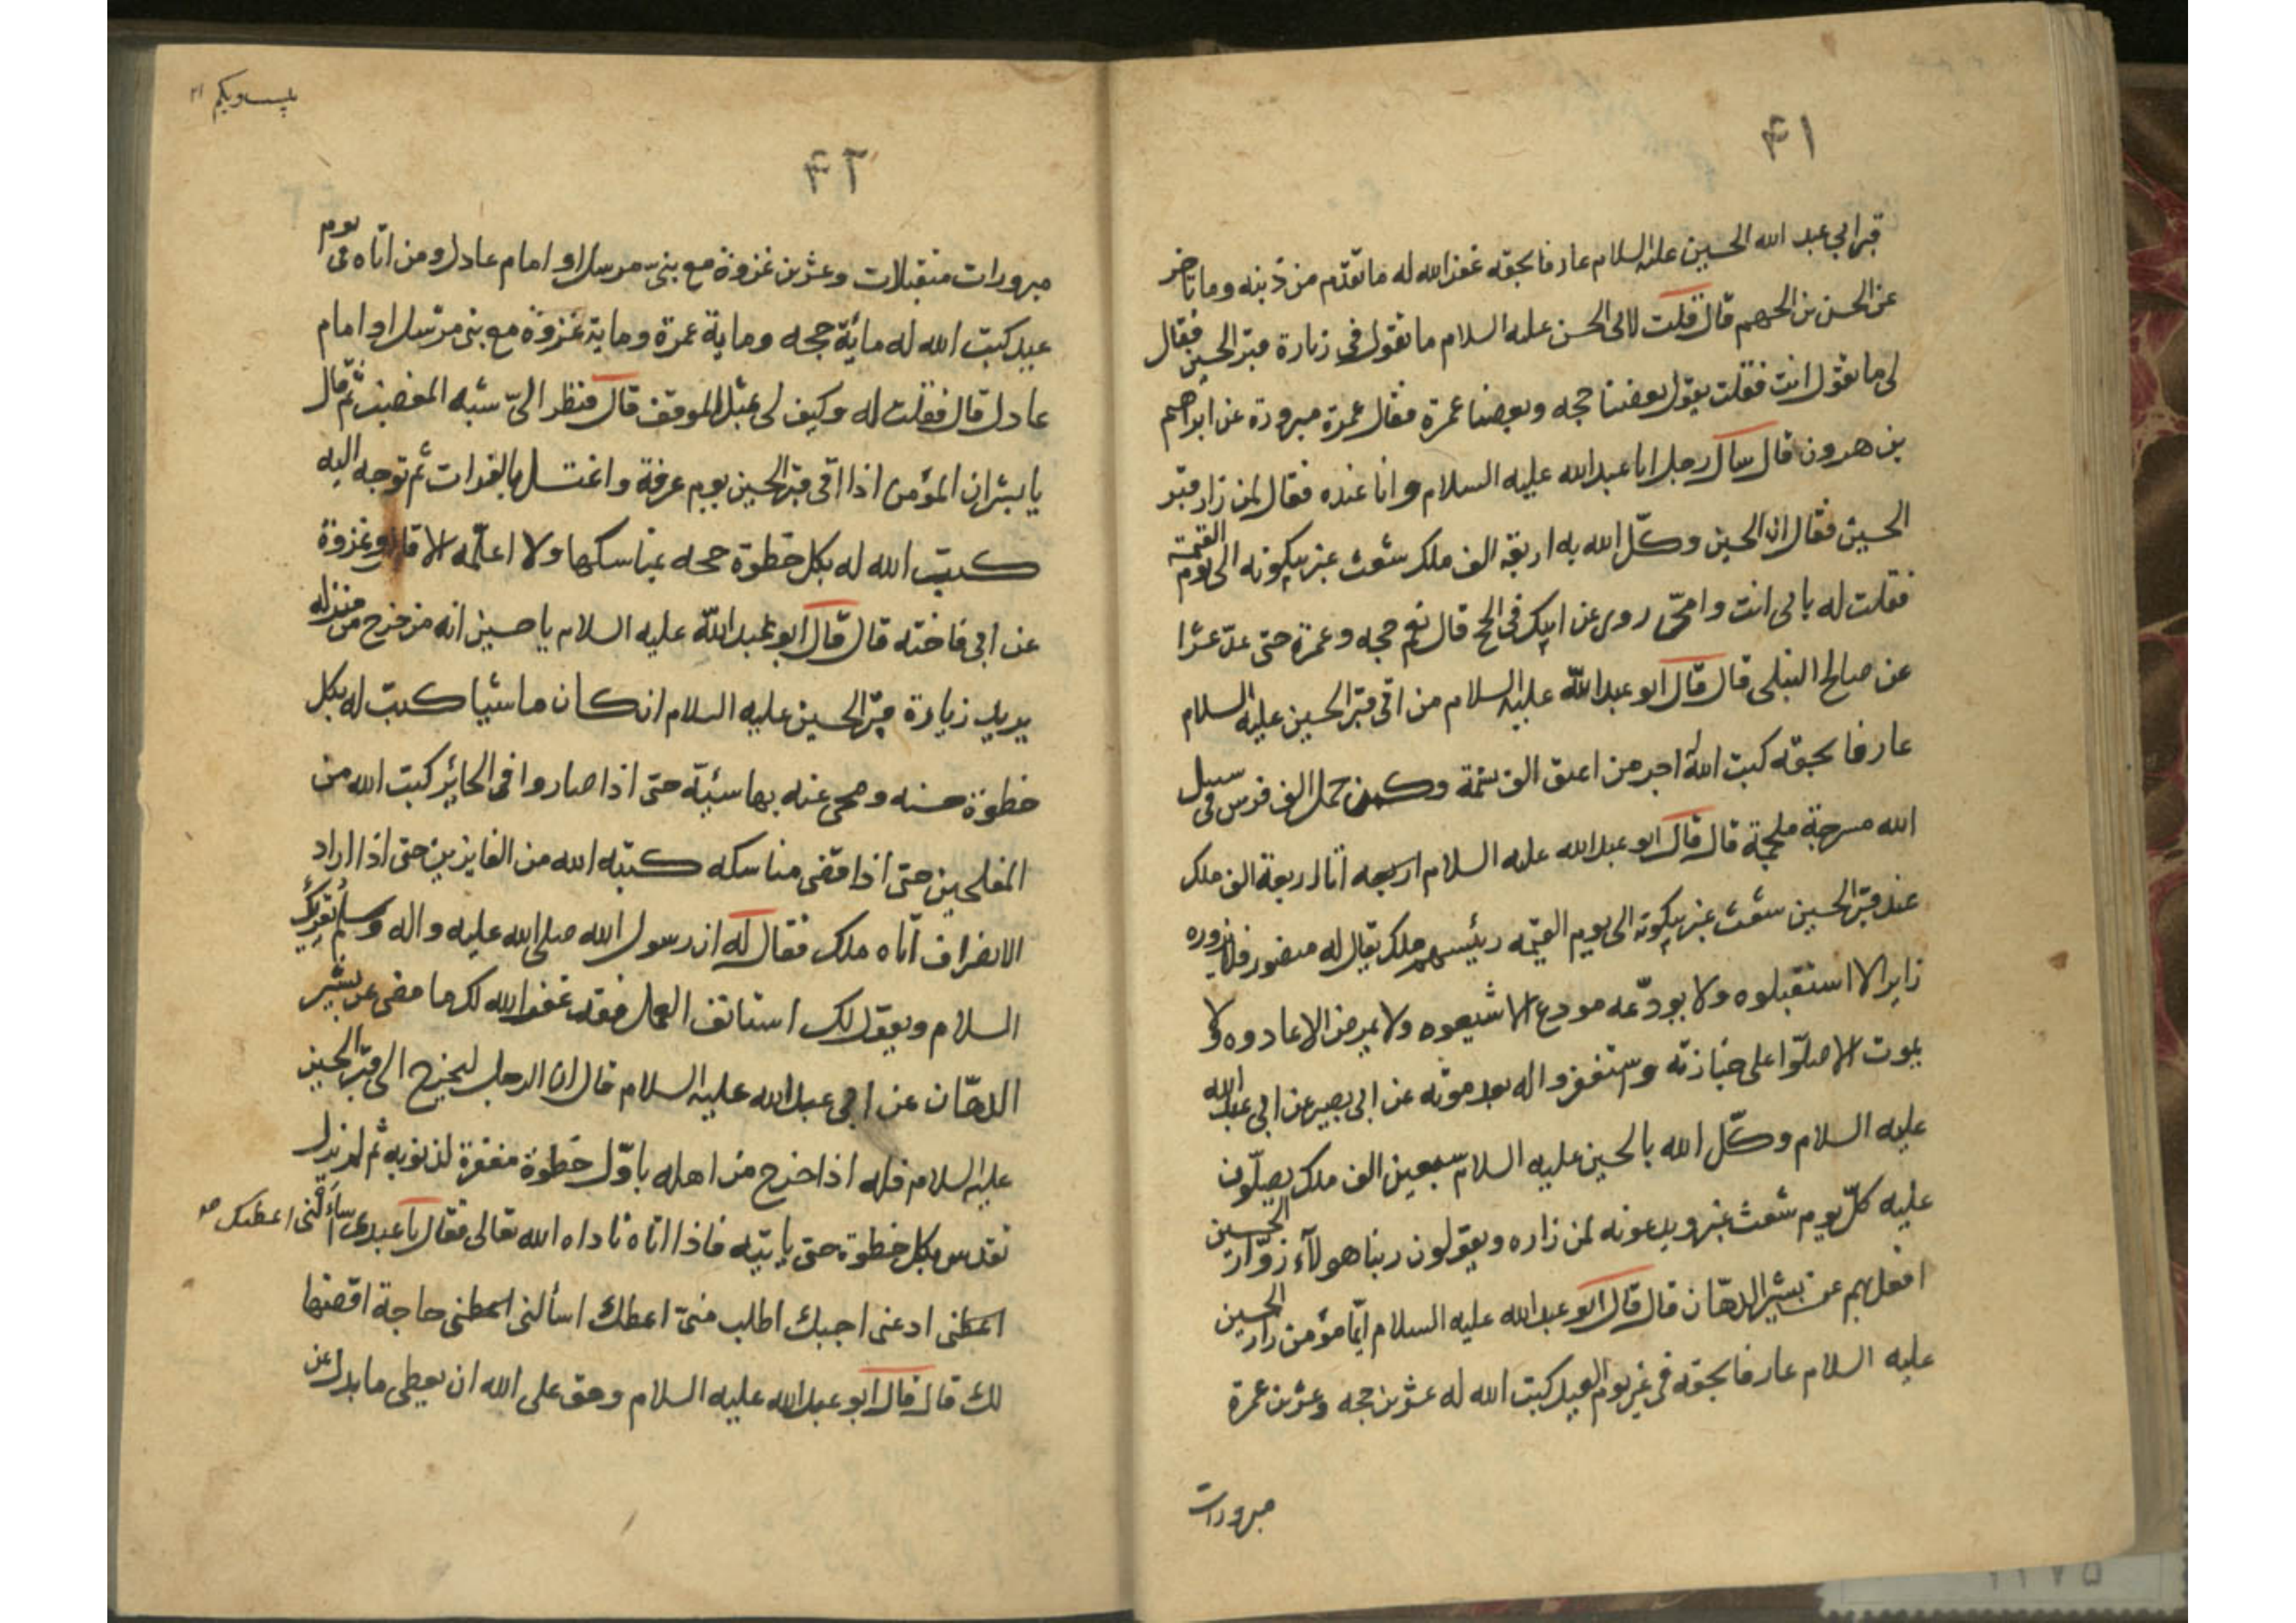 ۴۱
قبر ابي عبد الله الحسين عليه السلام عارفا بحقه غفر الله له ما تقدّم من ذنبه وما تاخر
عن الحسن بن الجهم قال قلت لابى الحسن عليه السلام ما تقول فى زيارة قبر الحسين فقال
لى ما تقول انت فقلت يقول بعضنا حجه وبعضنا عمرة فقال عمرة مبرورة عن ابراهيم
بن هرون قال سال رجل ابا عبد الله عليه السلام وانا عنده فقال لمن زار قبر
الحسين فقال ان الحسين وكّل الله به اربعة الف ملك شعث غبر يبكونه الى يوم القيمة
فقلت له بابى انت وامىّ روى عن ابيك فى الحج قال نعم حجه وعمرة حتى عدّ عشرا
عن صالح النيلى قال قال ابو عبد الله عليه السلام من اتى قبر الحسين عليه السلام
عارفا بحقه كتب الله له اجر من اعتق الف نسمة وكمن حمل الف فرس فى سبيل
الله مسرجة ملجمة قال قال ابو عبد الله عليه السلام اربعة الف ملك
عند قبر الحسين شعث غبر يبكونه الى يوم القيمه رئيسهم ملك يقال له منصور فلا يزوره
زاير الا استقبلوه ولا يودّعه مودع الا شيعوه ولا يمرض الا عادوه ولا
يموت الا صلّوا على جنازته واستغفروا له بعد موته عن ابى بصير عن ابى عبد الله
عليه السلام وكّل الله بالحسين عليه السلام سبعين الف ملك يصلّون
عليه كلّ يوم شعث غبر ويدعونه لمن زاره ويقولون ربنا هولاء زوّار الحسين
افعل بهم عن بشير الدهّان قال قال ابو عبد الله عليه السلام ايّما مؤمن زار الحسين
عليه السلام عارفا بحقه فى غير يوم العيد كتب الله له عشرين حجه وعشرين عمرة
مبرورات
۴۲
مبرورات متقبلات وعشرين غزوة مع بنى مرسل او امام عادل ومن اتاه فى يوم
عيد كتب الله له مائة حجه وماية عمرة وماية غزوة مع بنى مرسل او امام
عادل قال فقلت له وكيف لى بمثل الموقف قال فنظر الىّ شبه المغضب ثم قال
يا بشر ان المؤمن اذا اتى قبر الحسين يوم عرفة واغتسل بالفرات ثم توجه اليه
كتب الله له بكل خطوة حجه بمناسكها ولا اعلمه الا قال وغزوة
عن ابى فاخته قال قال ابو عبد الله عليه السلام يا حسين انه من خرج من منزله
يريد زيارة قبر الحسين عليه السلام ان كان ماشيا كتب له بكل
خطوة حسنه ومحى عنه بها سيئة حتى اذا صاروا فى الحاير كتب الله من
المفلحين حتى اذا قضى مناسكه كتبه الله من الفايزين حتى اذا اراد
الانصراف اتاه ملك فقال له ان رسول الله صلى الله عليه واله وسلم يقرئك
السلام ويقول لك استانف العمل فقد غفر الله لك ما مضى عن بشير
الدهّان عن ابى عبد الله عليه السلام قال ان الرجل ليخرج الى قبر الحسين
عليه السلام فله اذا خرج من اهله باوّل خطوة مغفرة لذنوبه ثم لم يزل
تقدس بكل خطوة حتى ياتيه فاذا اتاه ناداه الله تعالى فقال يا عبدى ساءلنى اعطك
اعطنى ادعنى اجبك اطلب منىّ اعطك اسألنى اعطنى حاجة اقضتها
لك قال قال ابو عبد الله عليه السلام وحق على الله ان يعطى ما بذل عن